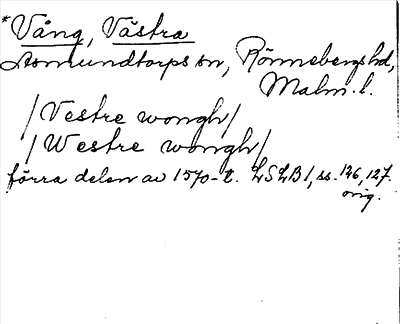 *Vång, Västra
Asmundtorps sn, Rönnebergs hd,
Malm. l.
/Vestre wongh/
/Westre wongh/
förra delen av 1570-t. LSLB 1, ss. 126, 127.
orig.